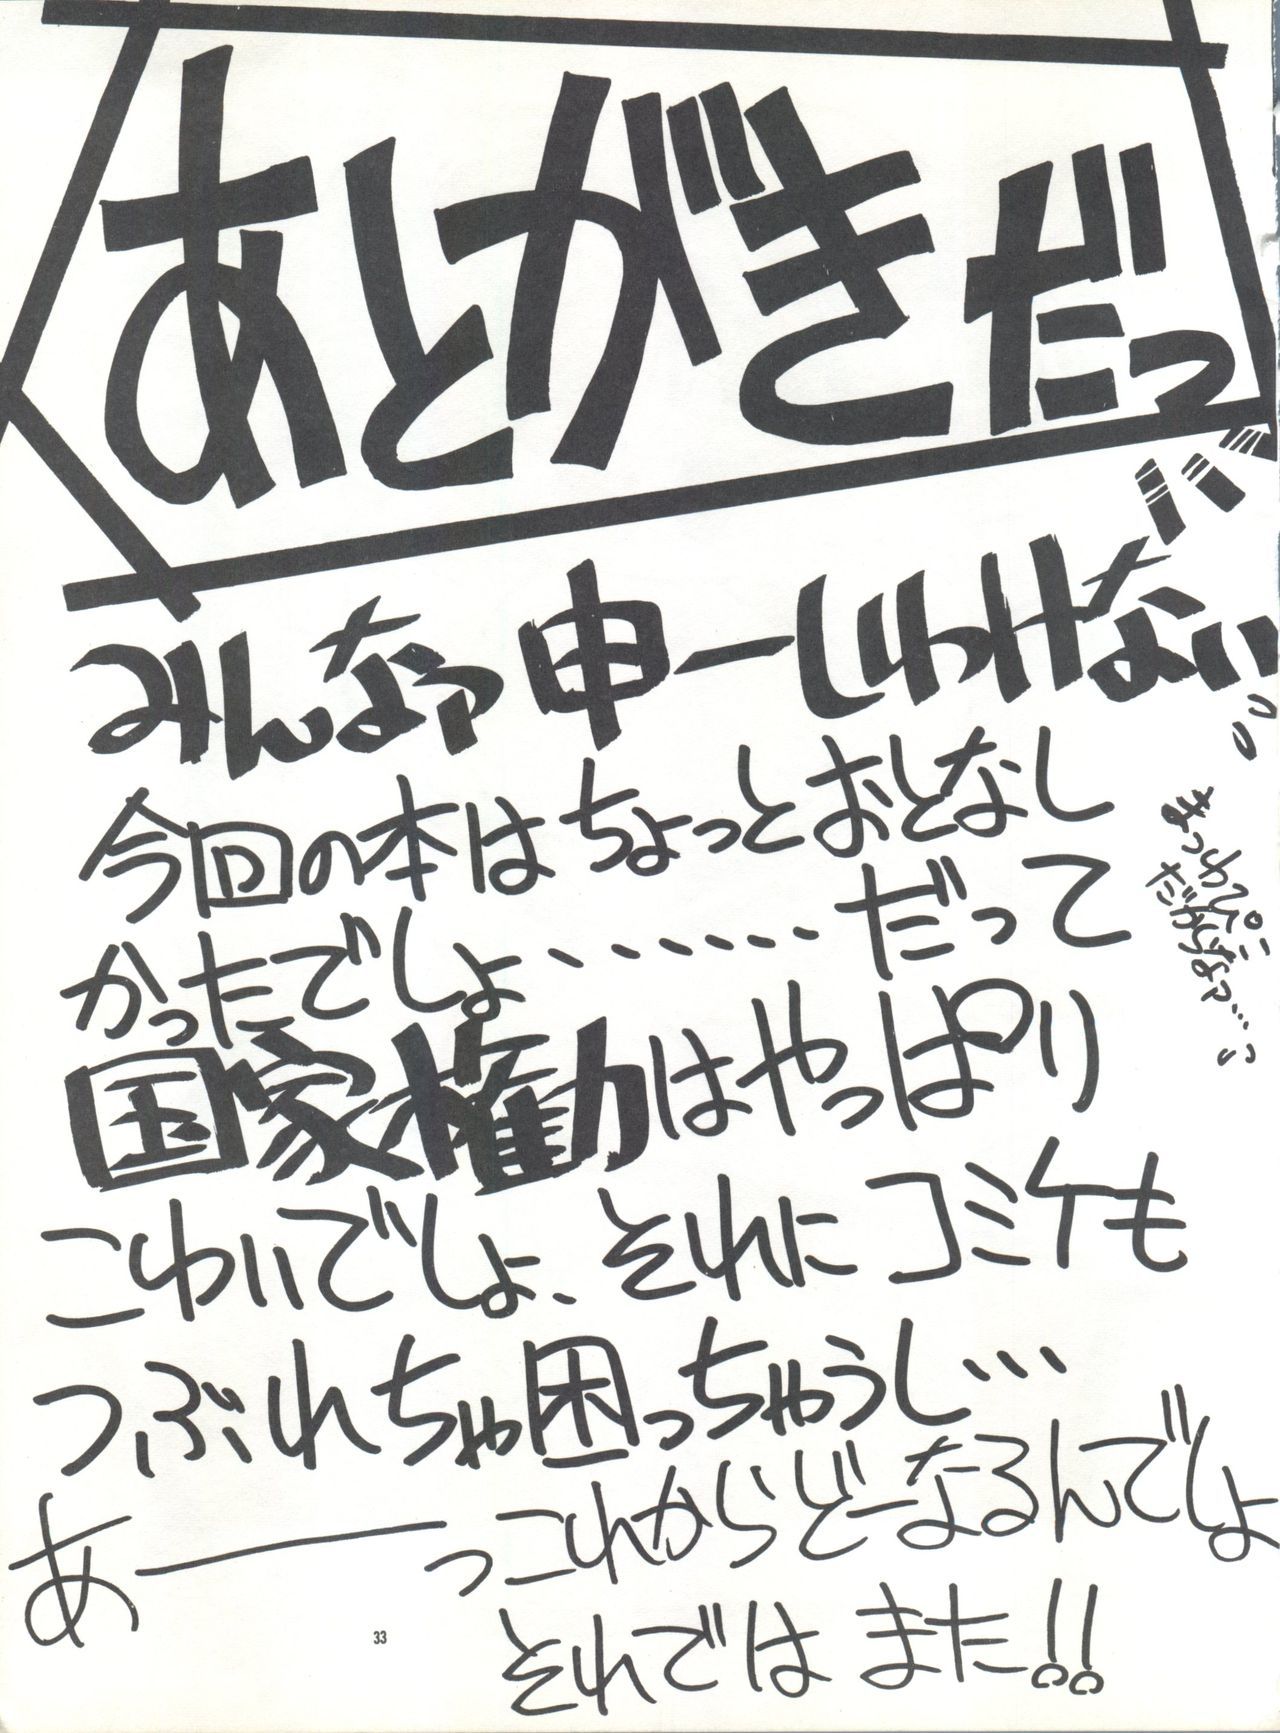 あとがきだっ
みんなァ申ーしわけない
今回の本はちょっとおとなし
かったでしょ・・・・・・・だって
国家権力はやっぱり
こわいでしょ、それにコミケも
つぶれちゃ困っちゃうし・・・
あーーーっこれからどーなるんでしょ
それではまた!!
だからなァ・・・・
33